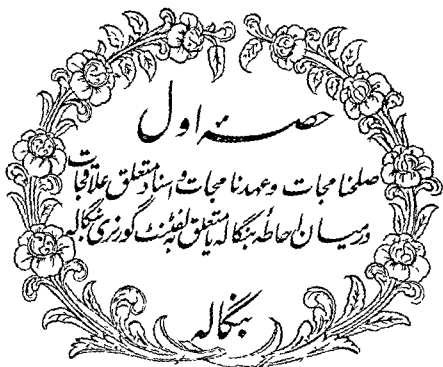 حصہ اول
صلحنامجات وعہدنامجات واسناد متعلق علاقجات
درمیان احاطہ بنگالہ یا متعلق لفٹنٹ گورنری بنگالہ
بنگالہ